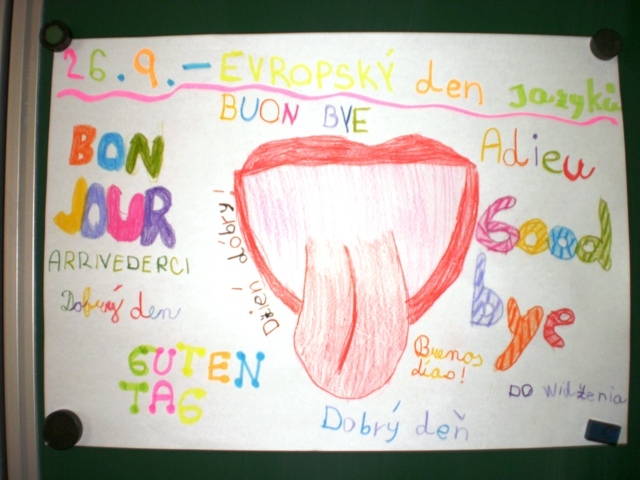 26.9.- EVROPSKÝ den jazyků
BUON BYE
BON
JOUR
Adieu
Good
bye
ARRIVEDERCI
Dzień dobry!
Dobrý den
GUTEN
TAG
Buenos
días!
DO WidZenia
Dobrý deň